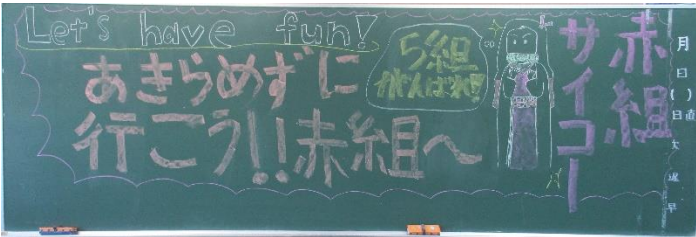 Let's have fun!
あきらめずに
行こう!!赤組へ
5組
がんばれ!!
赤組
サイコー
月
日
(日
)直